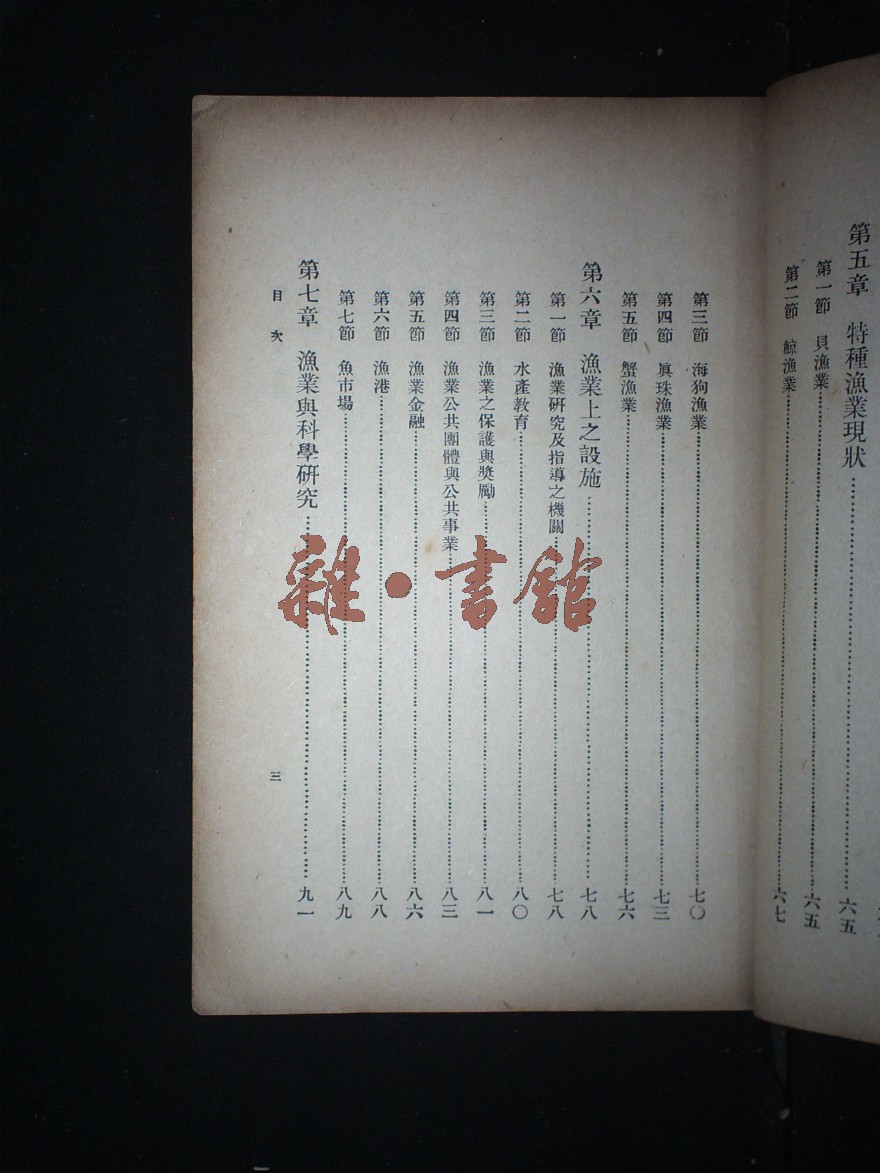 第五章 特種漁業現狀……六五
第一節 貝漁業……六五
第二節 鯨漁業……六七
第三節 海狗漁業……七〇
第四節 眞珠漁業……七三
第五節 蟹漁業……七六
第六章 漁業上之設施……七八
第一節 漁業硏究及指導之機關……七八
第二節 水產敎育……八〇
第三節 漁業之保護與奬勵……八一
第四節 漁業公共團體與公共事業……八三
第五節 漁業金融……八六
第六節 漁港……八八
第七節 魚市場……八九
第七章 漁業與科學硏究……九一
目次
三
雜·書館